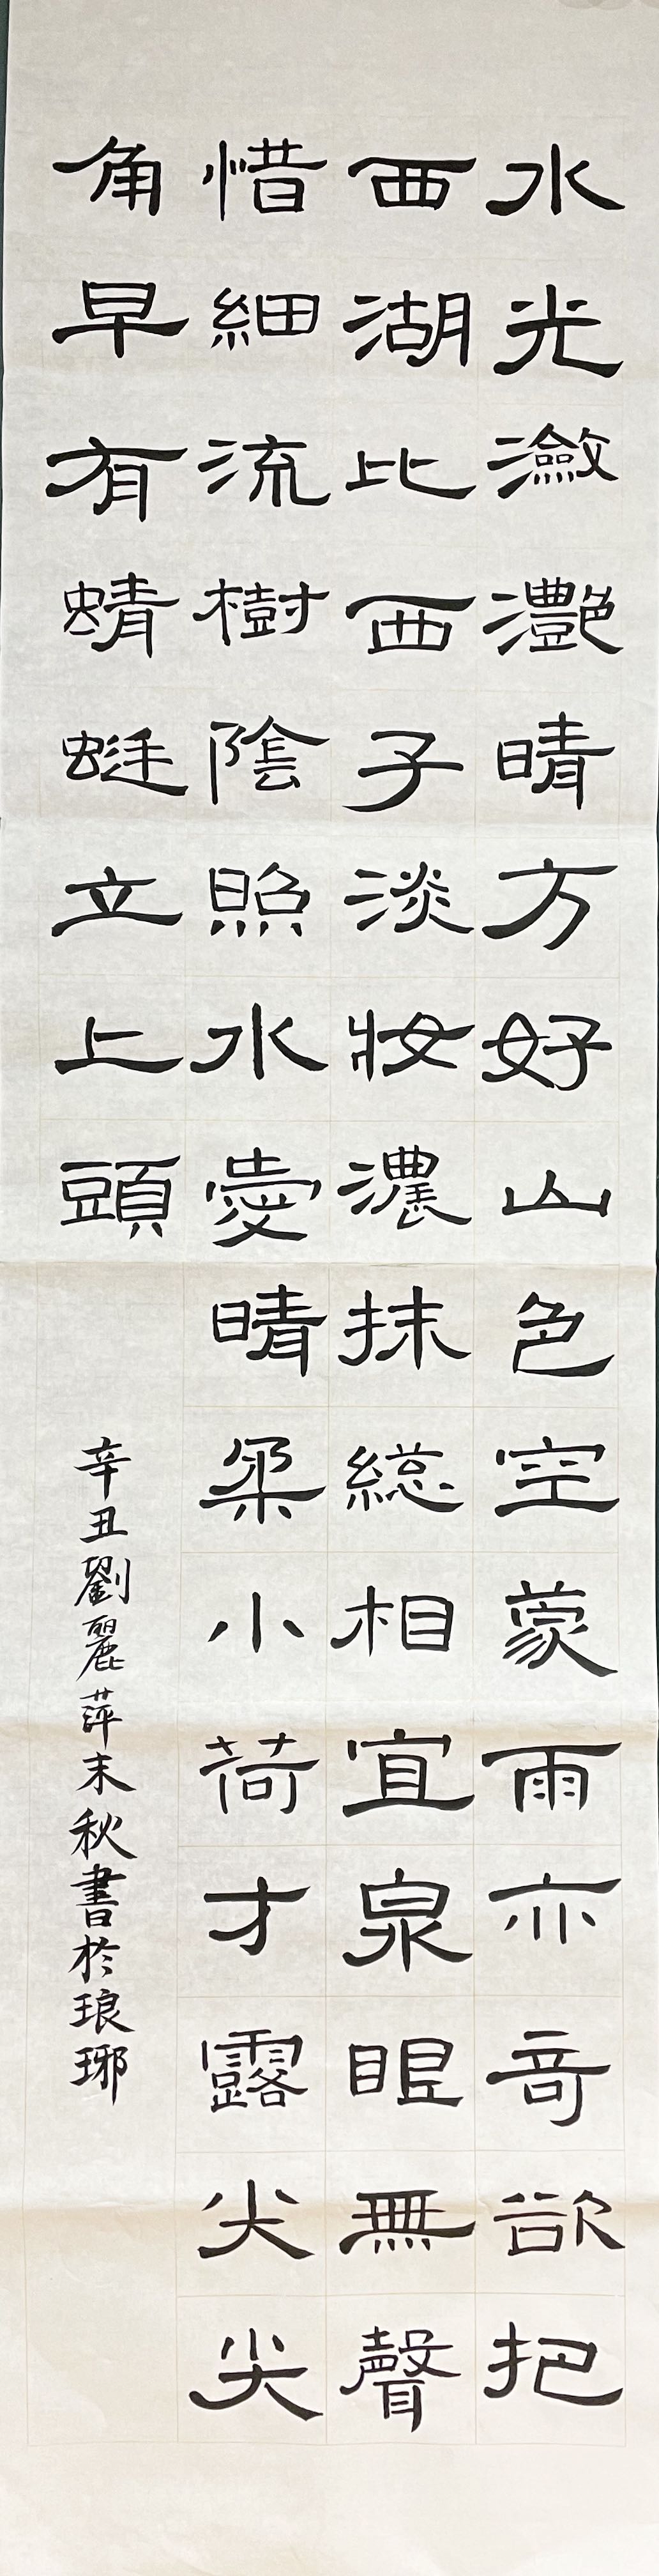 水光瀲灩晴方好山色空蒙雨亦奇欲把
西湖比西子淡妝濃抹総相宜泉眼無聲
惜細流樹陰照水愛晴柔小荷才露尖尖
角早有蜻蜓立上頭
辛丑劉麗萍末秋書於琅琊